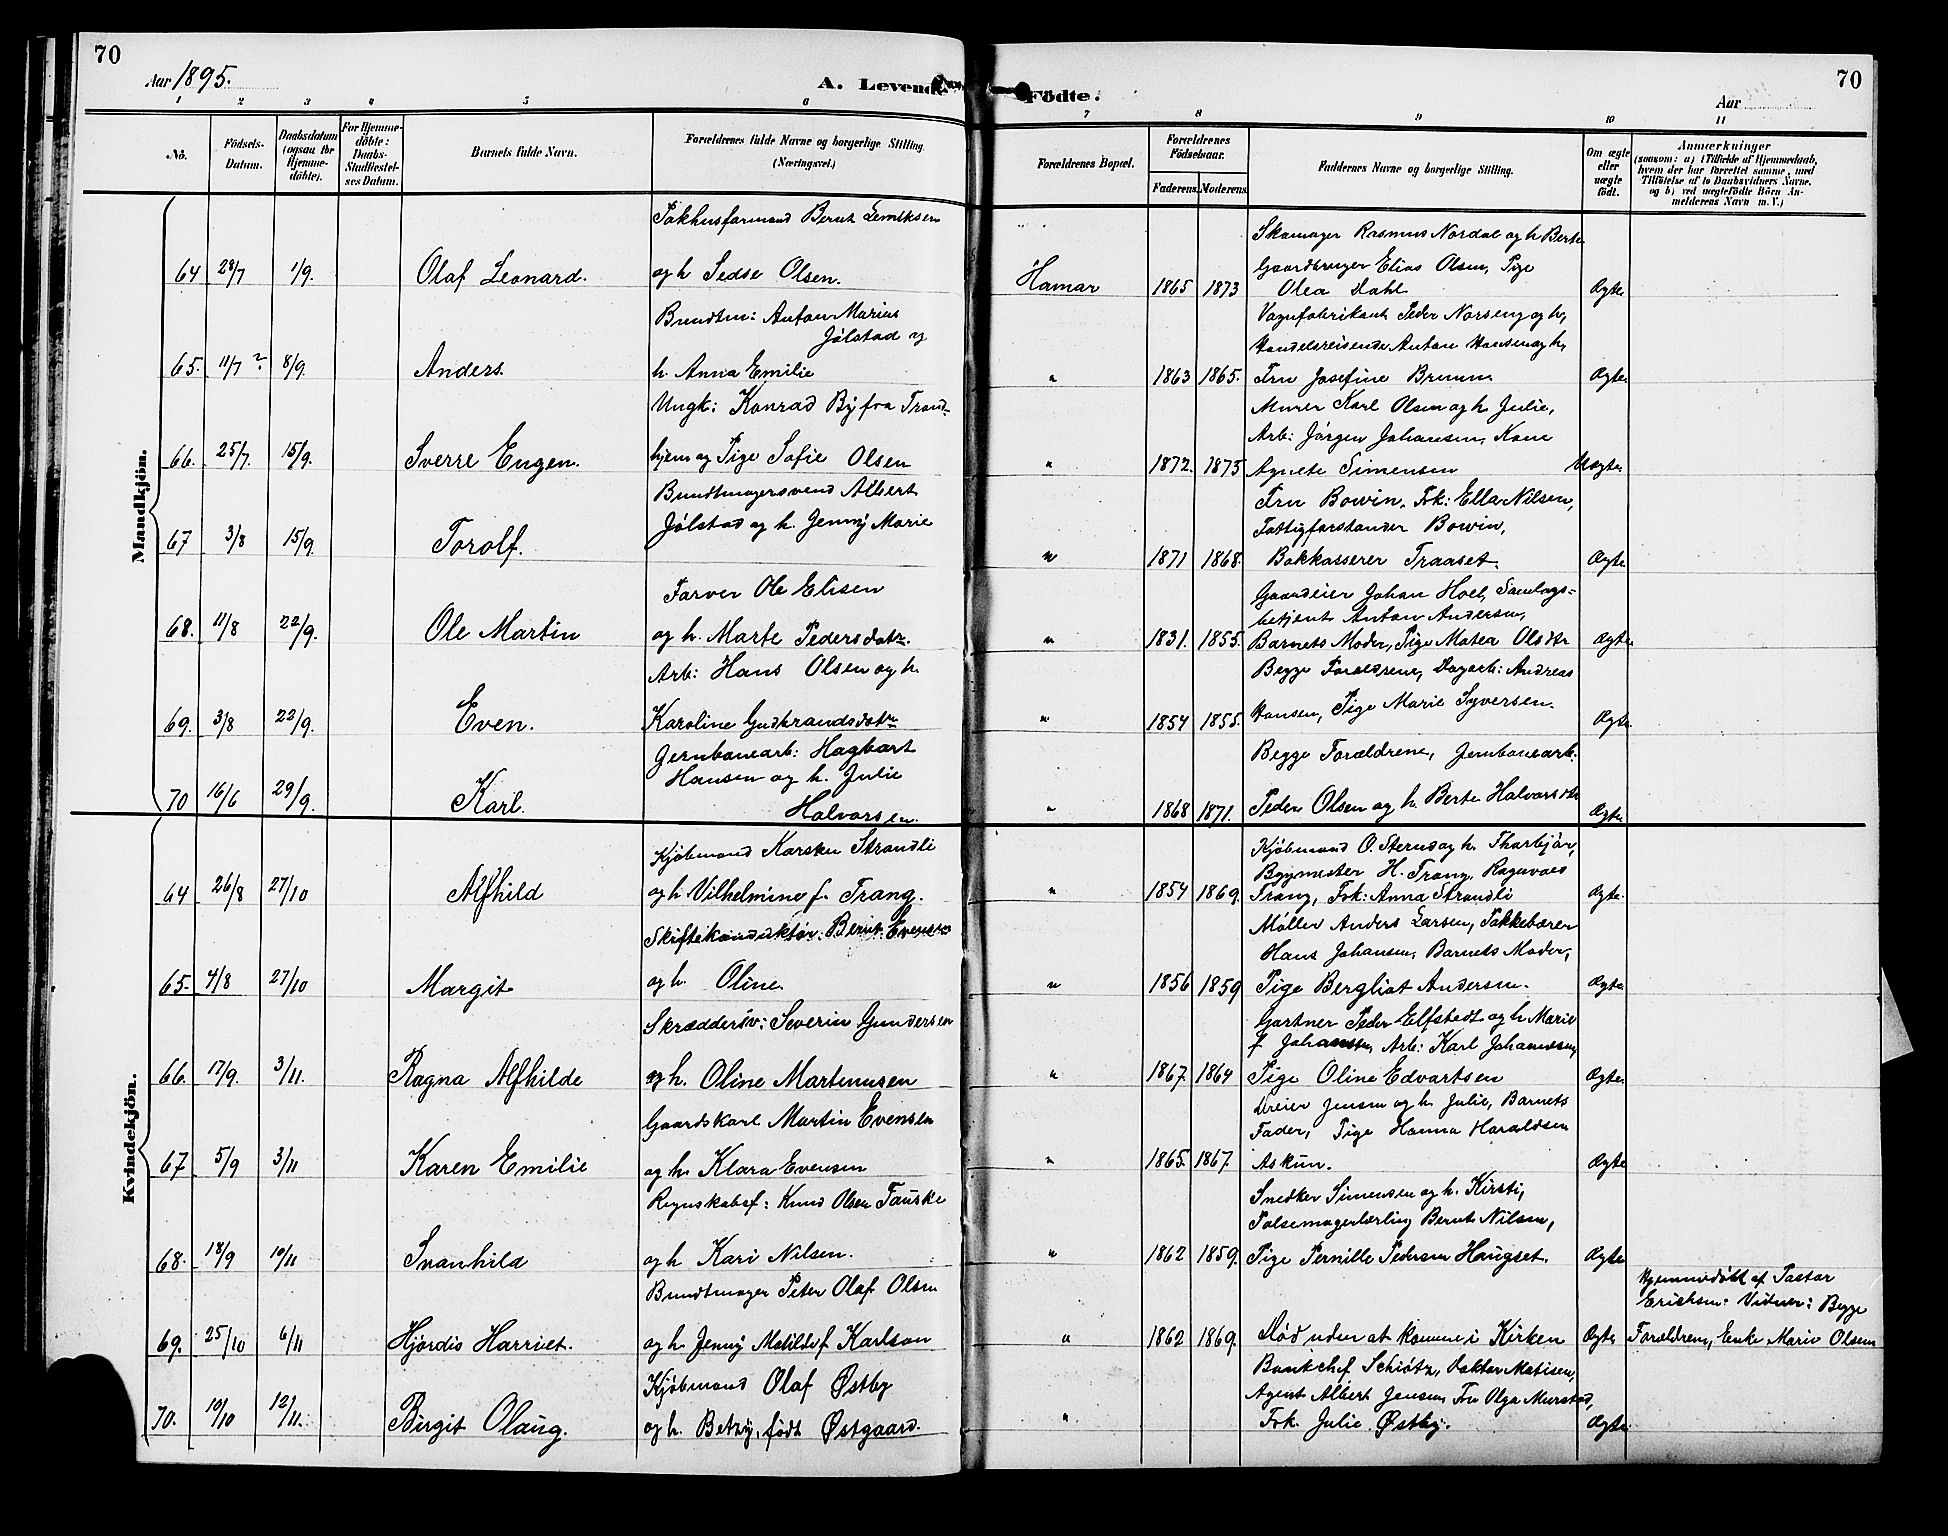 70
70
Aar 1895.
A. Levende Födte.
Aar
1 2 3 4 5 6 7 8 9 10 11
No.
Födsels-Datum.
Daabsdatum (ogsaa for Hjemme-döbte).
For Hjemme-döbte: Daabs-Stadfæstel-ses Datum.
Barnets fulde Navn.
Forældrenes fulde Navne og borgerlige Stilling. (Næringsvei.)
Forældrenes Bopæl.
Forældrenes Födselsaar.
Faderens. Moderens.
Faddernes Navne og borgerlige Stilling.
Om ægte eller uægte födt.
Anmærkninger
(saasom: a) i Tilfælde af Hjemmedaab,
hvem der har forrettet samme, med
Tilföielse af to Daabsvidners Navne.
og b) ved uægtefödte Börn An-
melderens Navn m. V.)
Mandkjön.
Pakhusformand Bernt
Skomager Rasmus Nordal og h Berte
Gaardbruger Elias Olsen, Pige
64 29/7 1/9. Olaf Leonard. og h Sedse Olsen. Hamar 1865 1873 Olea Dahl Ægte
Bundtm: Anton Marius
Jølstad og
Vognfabrikant Peder Norseng og h,
Handelsreisende Anton Hansen og h,
65. 11/7? 8/9. Anders. h. Anna Emilie " 1863 1865. Fru Josefine Ægte
Ungk: Konrad By fra Trond-
Murer Karl Olsen og h Julie,
Arb: Jörgen Johansen, Kone
66. 25/7. 15/9. Sverre Eugen. hjem og Pige Sofie Olsen " 1872. 1873 Agnete Simensen Uægte
Bundtmagersvend Albert
Jølstad og h. Jenny Marie
Fru Bowin, Frk: Ella Nilsen,
Fattigforstander Bowin,
67 3/8 15/9. Torolf. " 1871 1868. Traaset. Ægte
Farver Ole Elisen
Gaardeier Johan Hoel, Samlags-
betjent Anton Andersen,
68. 11/8 22/9. Ole Martin og h. Marte Pedersdatr. " 1831. 1855. Barnets Moder, Pige Matea Olsdtr Ægte
Arb: Hans Olsen og h.
Begge Forældrene, Dagarb: Andreas
69. 3/8 22/9. Even. Karoline Gudbrandsdatr " 1854 1855. Hansen, Pige Marie Syversen. Ægte
Jernbanearb: Hagbart
Hansen og h. Julie
Begge Forældrene, Jernbanearb.
70 16/6 29/9. Karl. Halvorsen. " 1868 1871. Peder Olsen og h. Berte Halvorsdtr Ægte
Kvindekjön.
Kjøbmand Karsten Strandli
Kjøbmand O. Stensd og h. Thorbjör,
Bygmester H. Trang, Ragnvald
64 26/8 27/10 Alfhild og h Vilhelmine f. Trang. " 1854 1869. Trang, Frk: Anna Strandli Ægte
Skiftekonduktør: Bernt Evensen
Møller Anders Larsen, Pakkebærer
Hans Johansen, Barnets Moder,
65. 4/8 27/10 Margit og h. Oline " 1856 1859 Pige Bergliot Andersen. Ægte
Skrædersv: Severin Gundersen
Gartner Peder Elfstedt og h Marie
f Johansen, Arb: Karl Johannesen,
66. 17/9. 3/11. Ragna Alfhilde og h. Oline Martinusen " 1867. 1864 Pige Oline Edvartsen Ægte
Gaardskarl Martin Evensen
Dreier Jensen og h Julie, Barnets
Fader, Pige Hanna Haraldsen
67 5/9 3/11 Karen Emilie og h. Klara Evensen " 1865. 1867. Askim. Ægte
Regnskabsf: Knud Olsen Tauske
Snedker Simensen og h. Kirsti,
Pølsemagerlærling Bernt Nilsen,
68. 18/9 10/11 Svanhild og h Kari Nilsen. " 1862 1859. Pige Pernille Pedersen Haugset. Ægte
Bundtmager Peter Olaf Olsen
Hjemmedøbt af Pastor
Erichsen. Vidner: Begge
69. 25/10 6/11 Hjördis Harriet. og h. Jenny Matilde f Karlson " 1862 1869. Död uden at komme i Kirken Ægte Forældrene, Enke Marie Olsen
Kjøbmand Olaf Østby
Bankchef Schiötz, Doktor Matisen,
Agent Albert Jensen, Fru Olga Murstad,
70. 10/10 12/11. Birgit Olaug. og h. Betzy, født Østgaard. " Frk. Julie Østby. Ægte